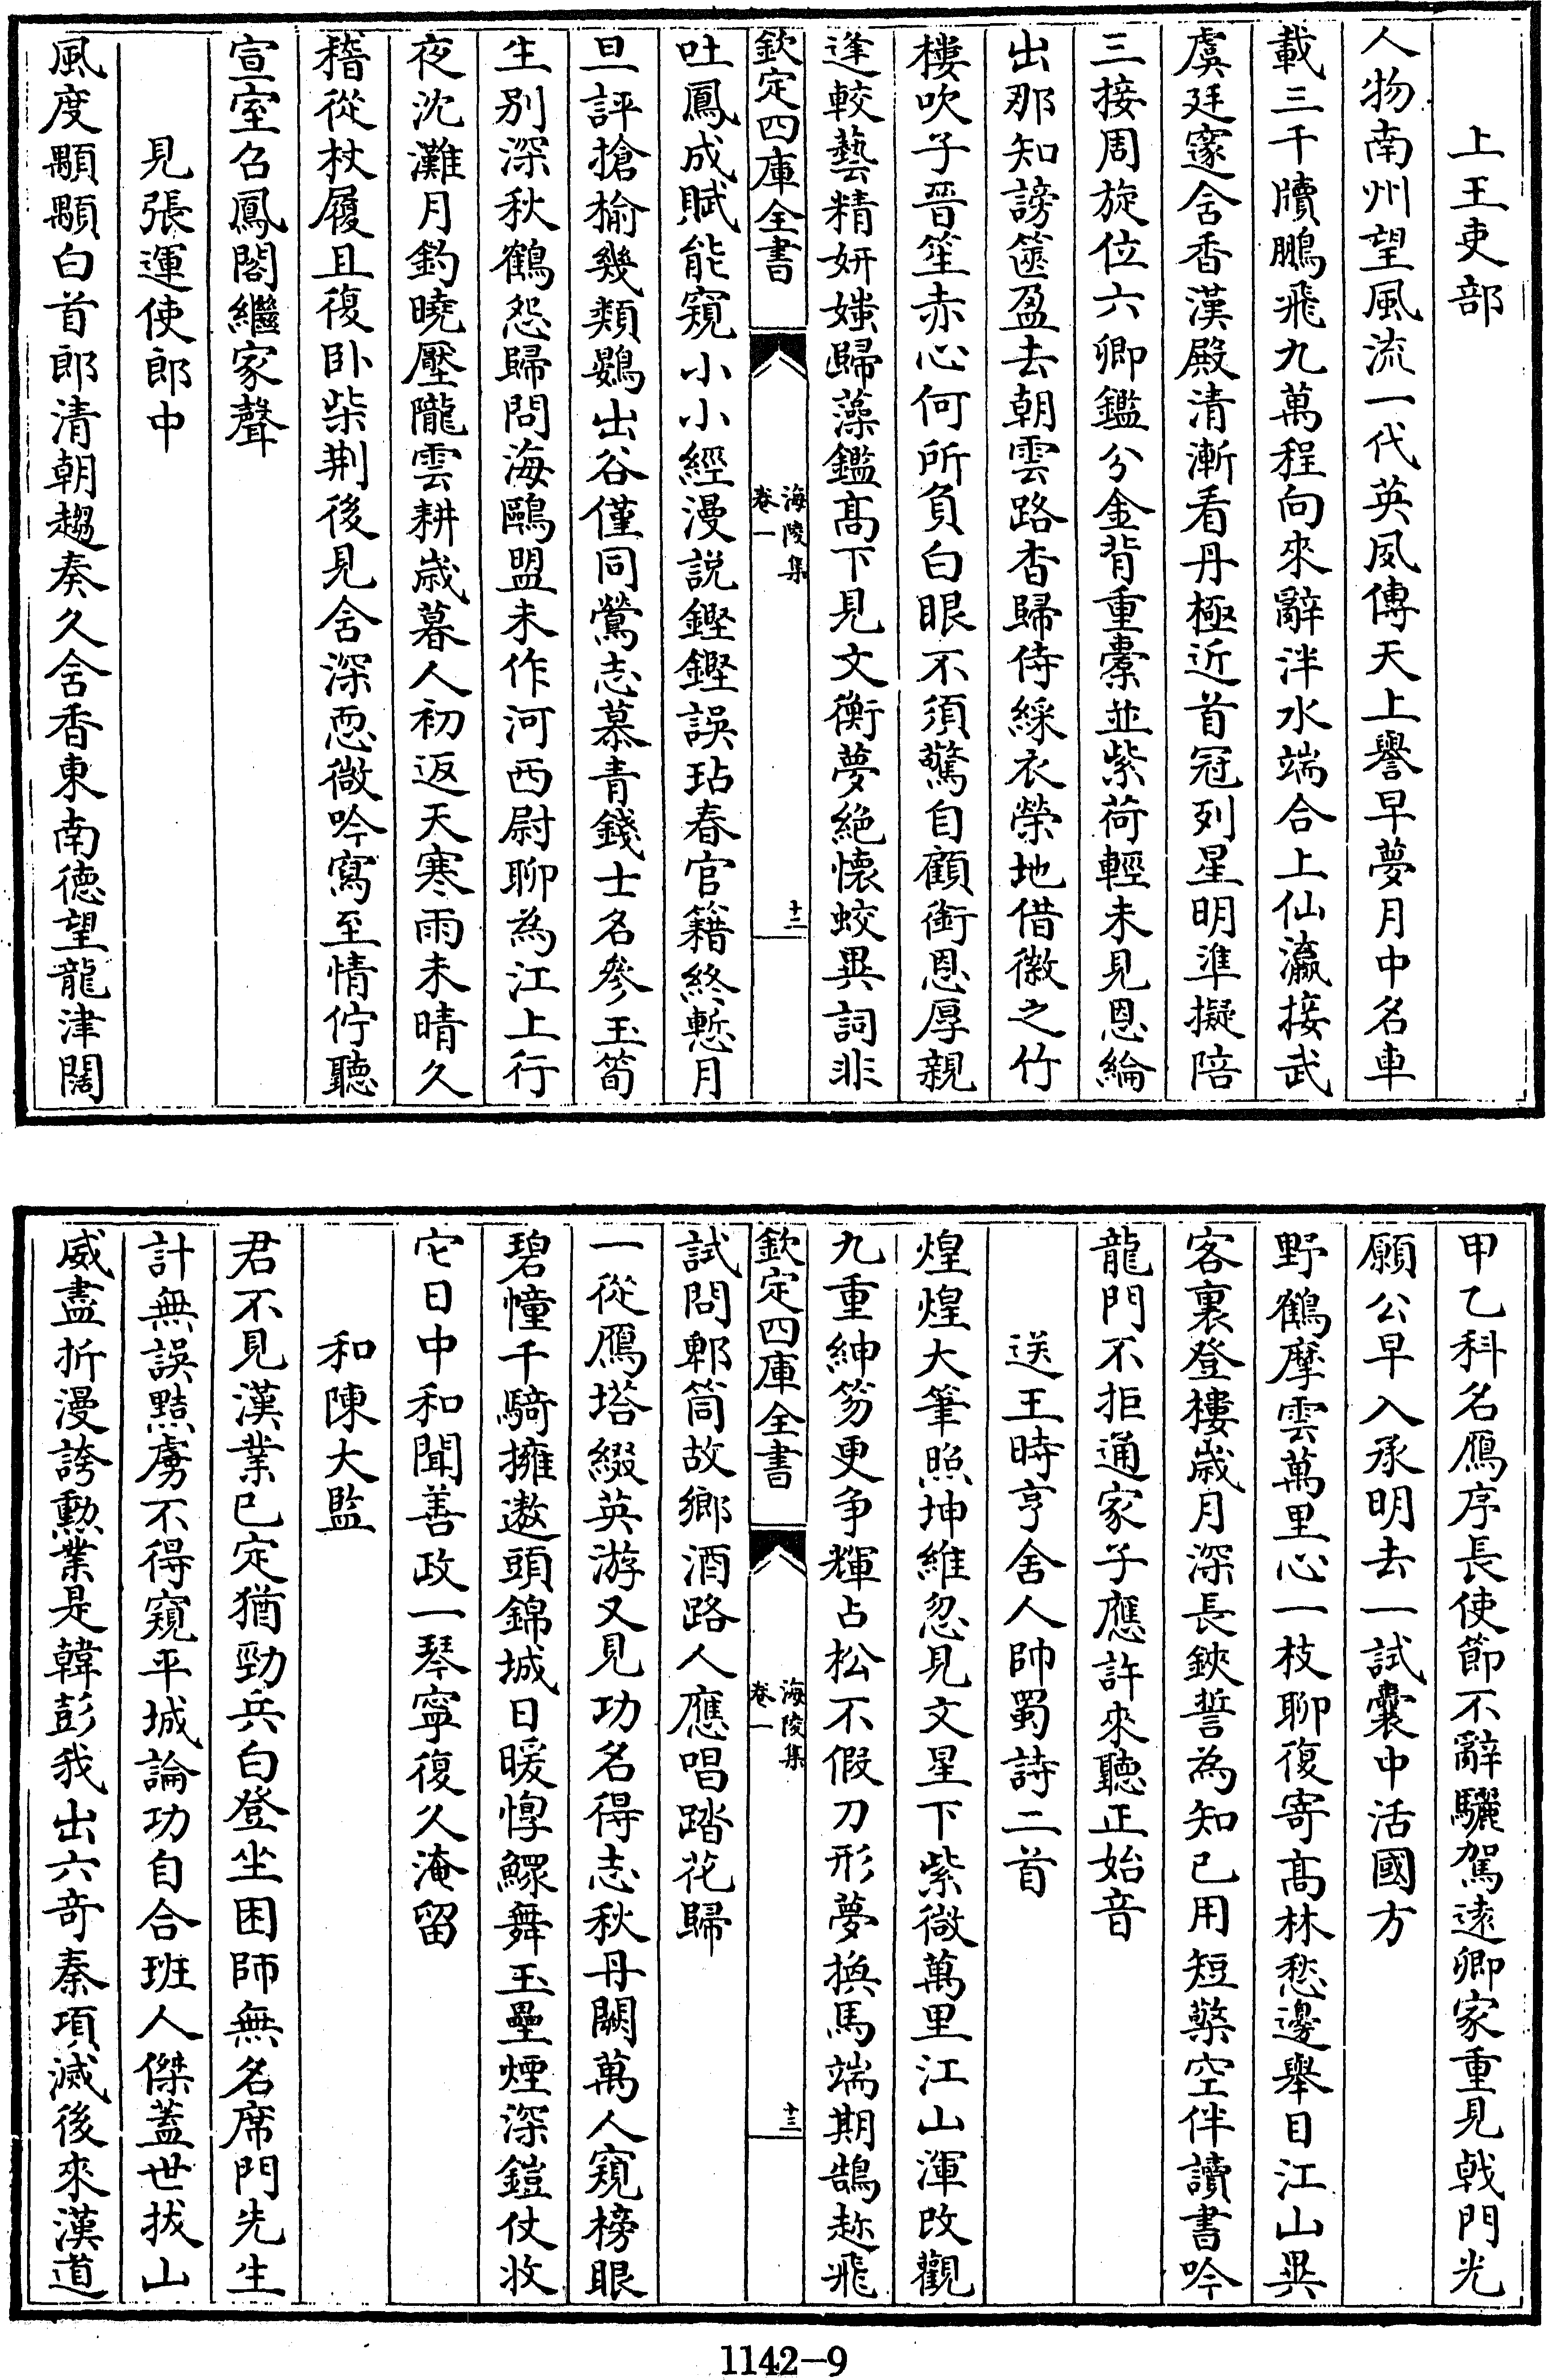 上王吏部
人物南州望風流一代英風傳天上譽早夢月中名車
載三千牘鵬飛九萬程向來辭泮水端合上仙瀛接武
虞廷邃含香漢殿清漸看丹極近首冠列星明準擬陪
三接周旋位六卿鑑分金背重橐並紫荷輕未見恩綸
出那知謗篋盈去朝雲路杳歸侍綵衣榮地借徽之竹
樓吹子晉笙赤心何所負白眼不須驚自顧銜恩厚親
逢較藝精妍媸歸藻鑑髙下見文衡夢絶懷蛟異詞非
欽定四庫全書
海陵集
卷一
十二
吐鳳成賦能窺小小經漫説鏗鏗誤玷春官籍終慙月
旦評搶榆幾類鷃出谷僅同鶯志慕青錢士名參玉筍
生别深秋鶴怨歸問海鷗盟未作河西尉聊為江上行
夜沈灘月釣曉壓隴雲耕歲暮人初返天寒雨未晴久
稽從杖履且復卧柴荆後見含深恧微吟寫至情佇聽
宣室召鳳閣繼家聲
見張運使郎中
風度顒顒白首郎清朝趨奏久含香東南徳望龍津闊
甲乙科名鴈序長使節不辭驪駕逺卿家重見㦸門光
願公早入承明去一試囊中活國方
野鶴摩雲萬里心一枝聊復寄髙林愁邊舉目江山異
客裏登樓歲月深長鋏誓為知己用短檠空伴讀書吟
龍門不拒通家子應許來聽正始音
送王時亨舍人帥蜀詩二首
煌煌大筆照坤維忽見文星下紫微萬里江山渾改觀
九重紳笏更争輝占松不假刀形夢換馬端期鵠趂飛
欽定四庫全書
海陵集
卷一
十三
試問郫筒故鄉酒路人應唱踏花歸
一從鴈塔綴英游又見功名得志秋丹闕萬人窺榜眼
碧幢千騎擁遨頭錦城日暖犉鰥舞玉壘煙深鎧仗收
它日中和聞善政一琴寧復久淹留
和陳大監
君不見漢業已定猶勁兵白登坐困師無名席門先生
計無誤黠虜不得窺平城論功自合班人傑蓋世拔山
威盡折漫誇勲業是韓彭我出六竒秦項滅後來漢道
1142-9